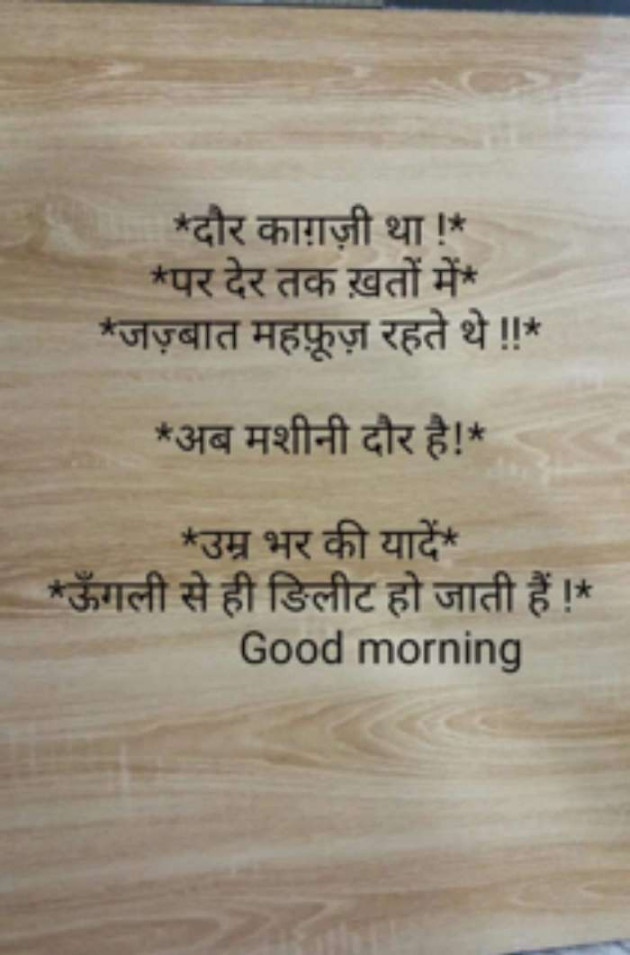 *दौर काग़ज़ी था !*
*पर देर तक ख़तों में*
*जज़्बात महफ़ूज़ रहते थे !!*
*अब मशीनी दौर है!*
*उम्र भर की यादें*
*ऊँगली से ही ङिलीट हो जाती हैं !*
Good morning